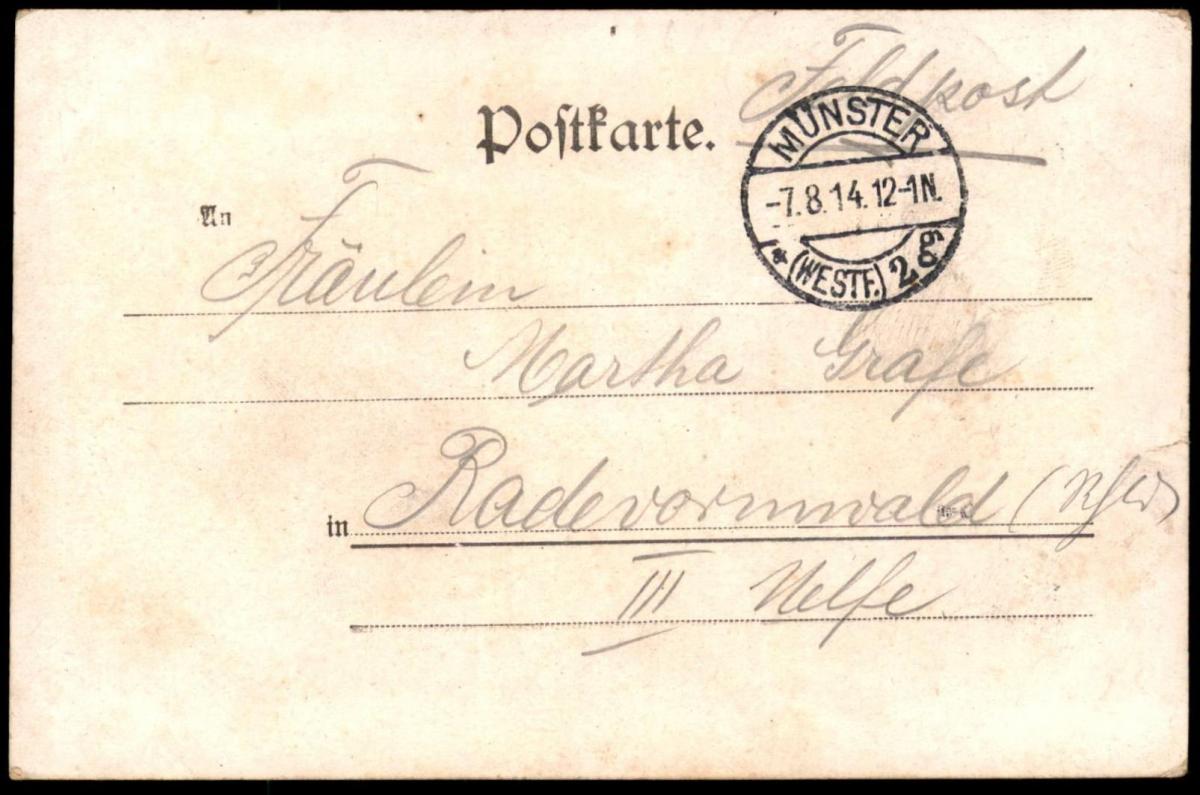 Feldpost
Postkarte.
MÜNSTER
-7.8.14.12-1N.
* (WESTF.) 2g
An
Fräulein
Martha Grafe
in Radevormwald (Rhld)
III Uelfe